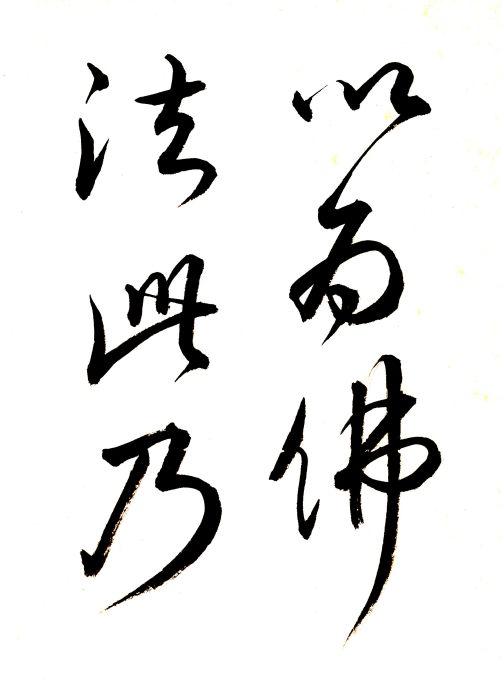 以為佛
法此乃